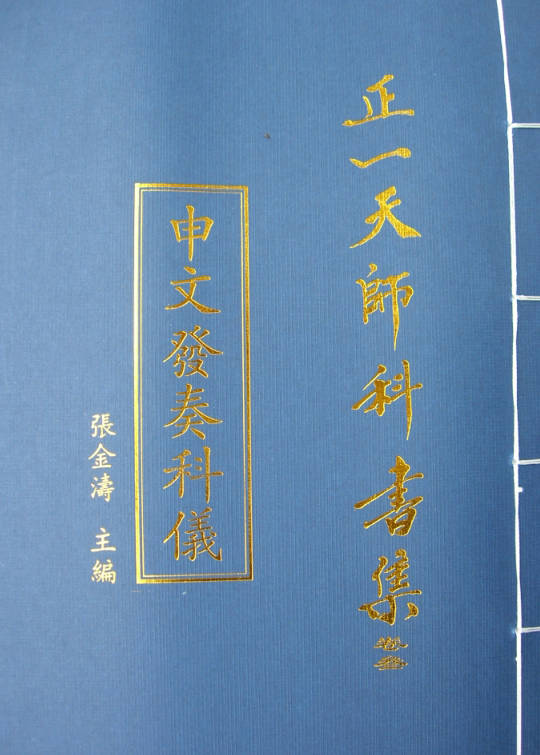 正一天師科書集 卷叁
申文發奏科儀
張金濤 主編